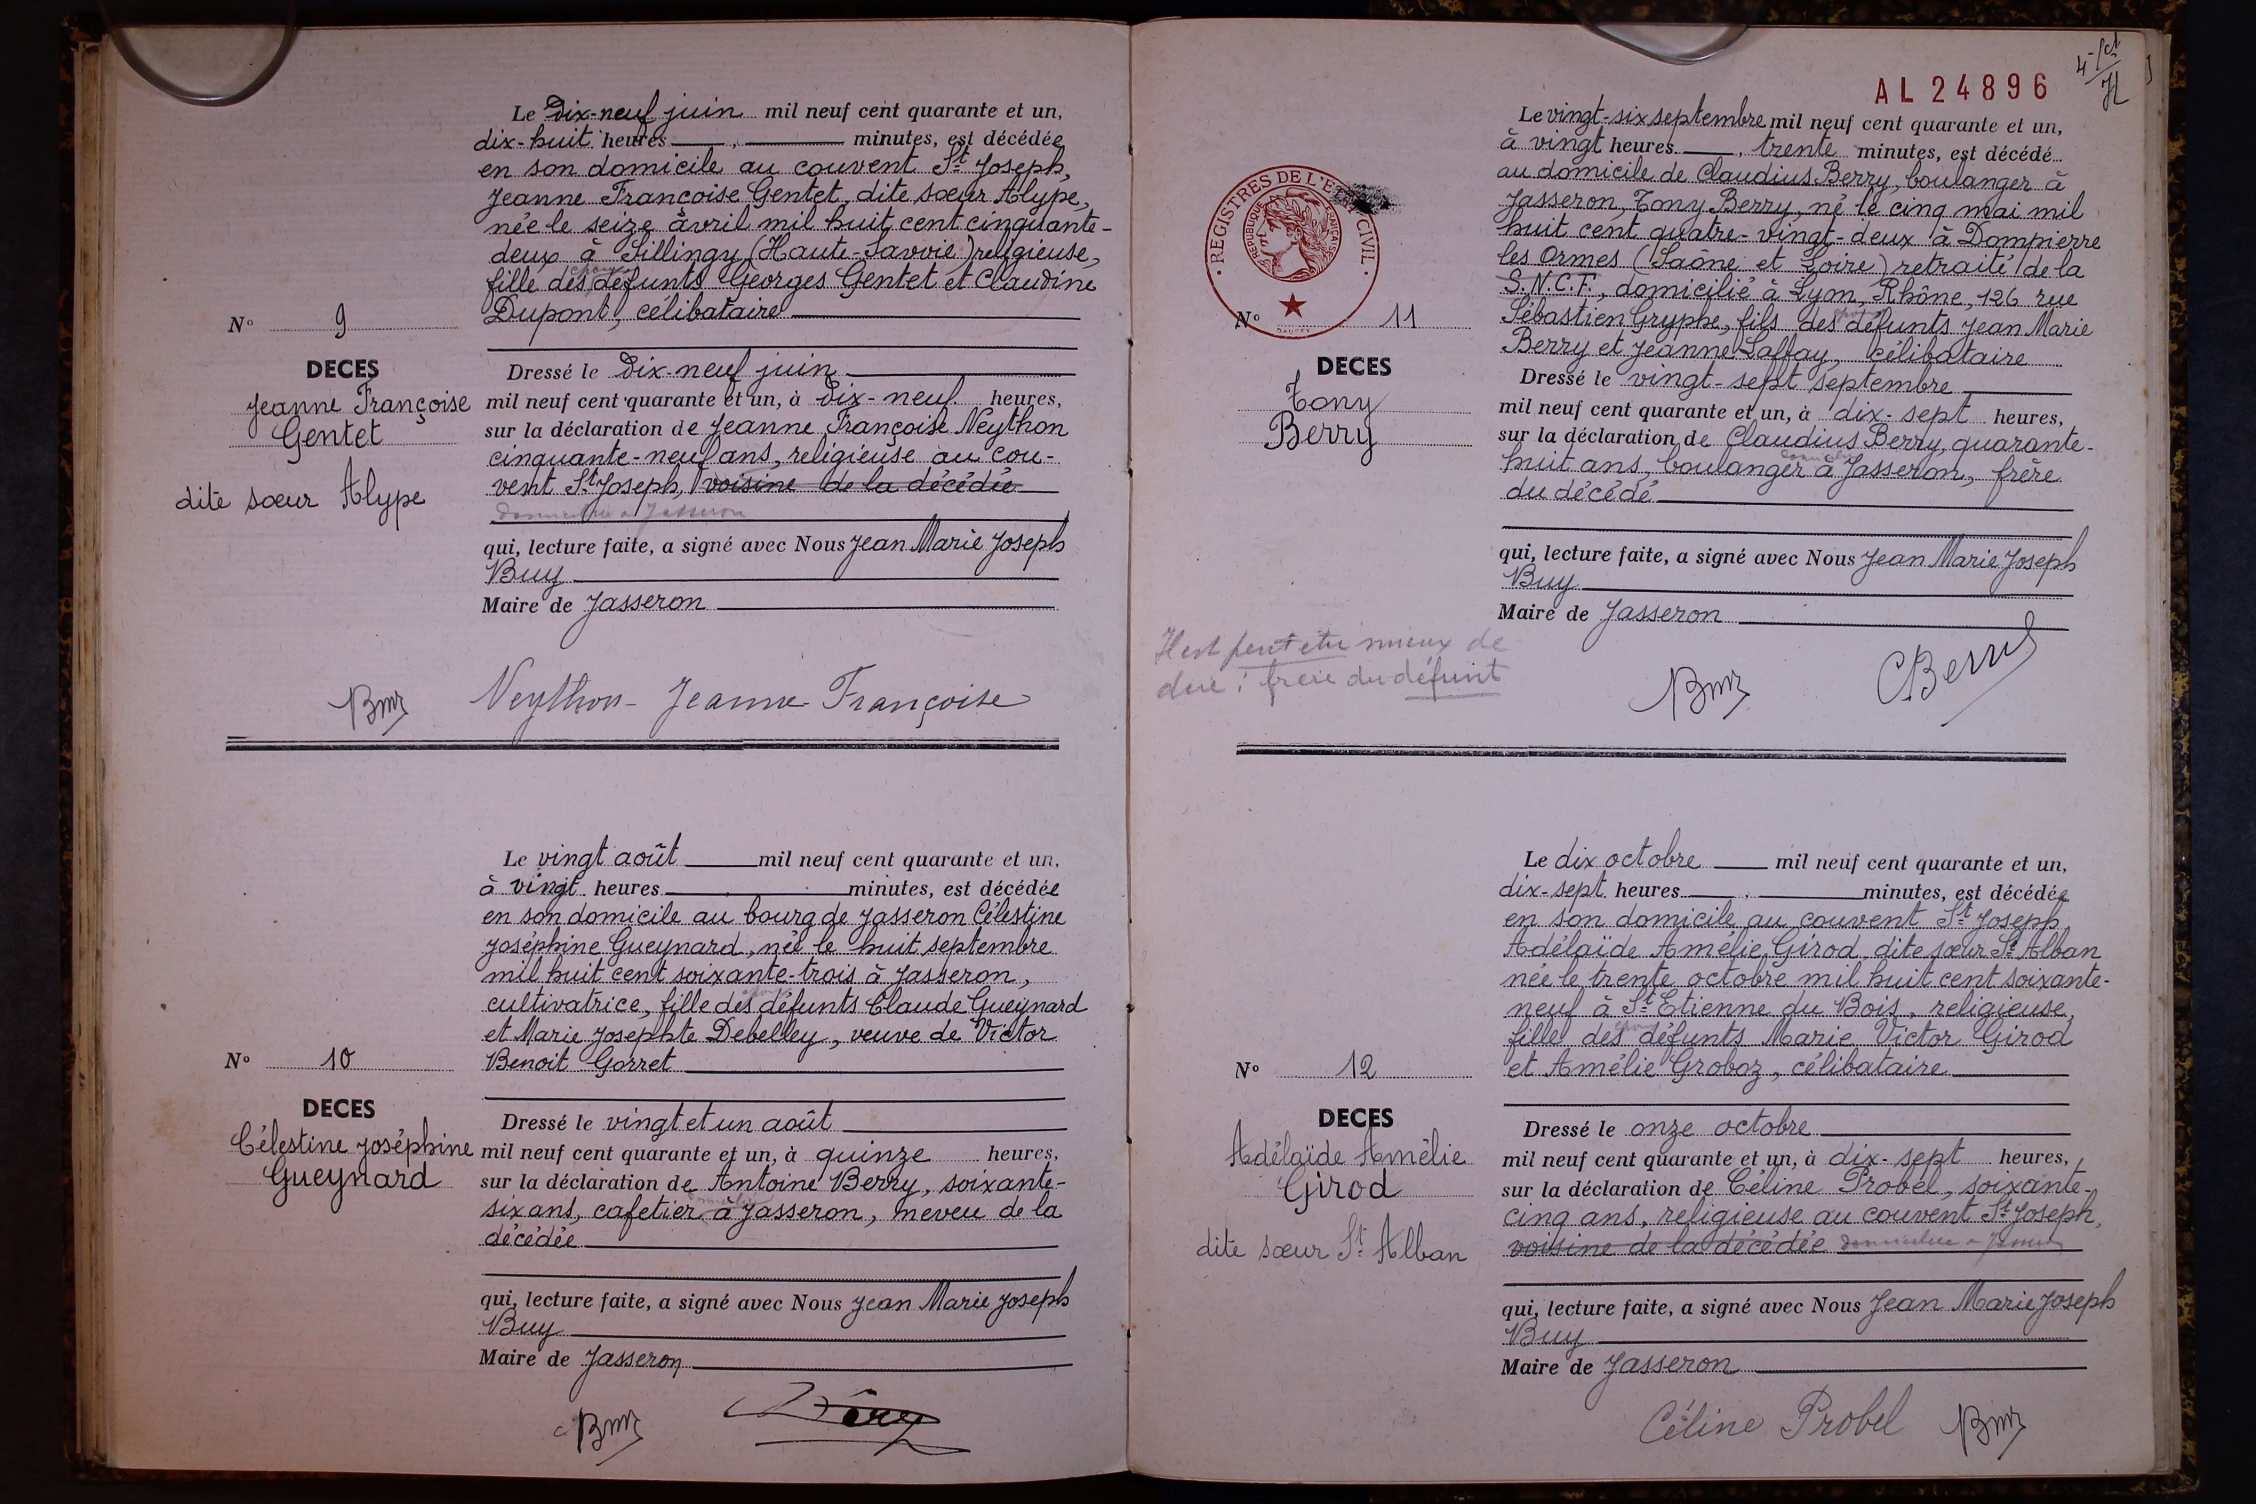 Le Dix-neuf juin mil neuf cent quarante et un,
dix-huit heures minutes, est décédée
en son domicile au couvent St Joseph,
Jeanne Françoise Gentet, dite sœur Alype,
née le seize avril mil huit cent cinquante-
deux à Sillingy (Haute-Savoie) religieuse,
fille des défunts Georges Gentet et Claudine
Dupont, célibataire
N° 9
DECES
Jeanne Françoise
Gentet
dite sœur Alype
Dressé le Dix-neuf juin
mil neuf cent quarante et un, à Dix-neuf heures,
sur la déclaration de Jeanne Françoise Neython
cinquante-neuf ans, religieuse au cou-
vent St Joseph, voisine de la décédée
domiciliée à Jasseron
qui, lecture faite, a signé avec Nous Jean Marie Joseph
Buy
Maire de Jasseron
Neython Jeanne Françoise
Le vingt août mil neuf cent quarante et un,
à vingt heures minutes, est décédée
en son domicile au bourg de Jasseron Célestine
Joséphine Gueynard, née le huit septembre
mil huit cent soixante-trois à Jasseron,
cultivatrice, fille des défunts Claude Gueynard
et Marie Josephte Debelley, veuve de Victor
Benoit Gorret
N° 10
DECES
Célestine Joséphine
Gueynard
Dressé le vingt et un août
mil neuf cent quarante et un, à quinze heures,
sur la déclaration de Antoine Berry, soixante-
six ans, cafetier à Jasseron, neveu de la
décédée
qui, lecture faite, a signé avec Nous Jean Marie Joseph
Buy
Maire de Jasseron
AL 24896
REGISTRES DE L'ETAT CIVIL
REPUBLIQUE FRANÇAISE
Le vingt-six septembre mil neuf cent quarante et un,
à vingt heures trente minutes, est décédé
au domicile de Claudius Berry, boulanger à
Jasseron, Tony Berry, né le cinq mai mil
huit cent quatre-vingt-deux à Dompierre
les Ormes (Saône et Loire) retraité de la
S.N.C.F., domicilié à Lyon, Rhône, 126 rue
Sébastien Gryphe, fils des défunts Jean Marie
Berry et Jeanne Laffay, célibataire
N° 11
DECES
Tony
Berry
Dressé le vingt-sept septembre
mil neuf cent quarante et un, à dix-sept heures,
sur la déclaration de Claudius Berry, quarante-
huit ans, boulanger à Jasseron, frère
du décédé
qui, lecture faite, a signé avec Nous Jean Marie Joseph
Buy
Maire de Jasseron
Il est peut etre mieux de
dire : frère du défunt
C Berry
Le dix octobre mil neuf cent quarante et un,
dix-sept heures minutes, est décédée
en son domicile au couvent St Joseph
Adélaïde Amélie Girod, dite sœur St Alban
née le trente octobre mil huit cent soixante-
neuf à St Etienne du Bois, religieuse,
fille des défunts Marie Victor Girod
et Amélie Groboz, célibataire
N° 12
DECES
Adélaïde Amélie
Girod
dite sœur St Alban
Dressé le onze octobre
mil neuf cent quarante et un, à dix-sept heures,
sur la déclaration de Céline Probel, soixante-
cinq ans, religieuse au couvent St Joseph,
voisine de la décédée domiciliée à Jasseron
qui, lecture faite, a signé avec Nous Jean Marie Joseph
Buy
Maire de Jasseron
Céline Probel